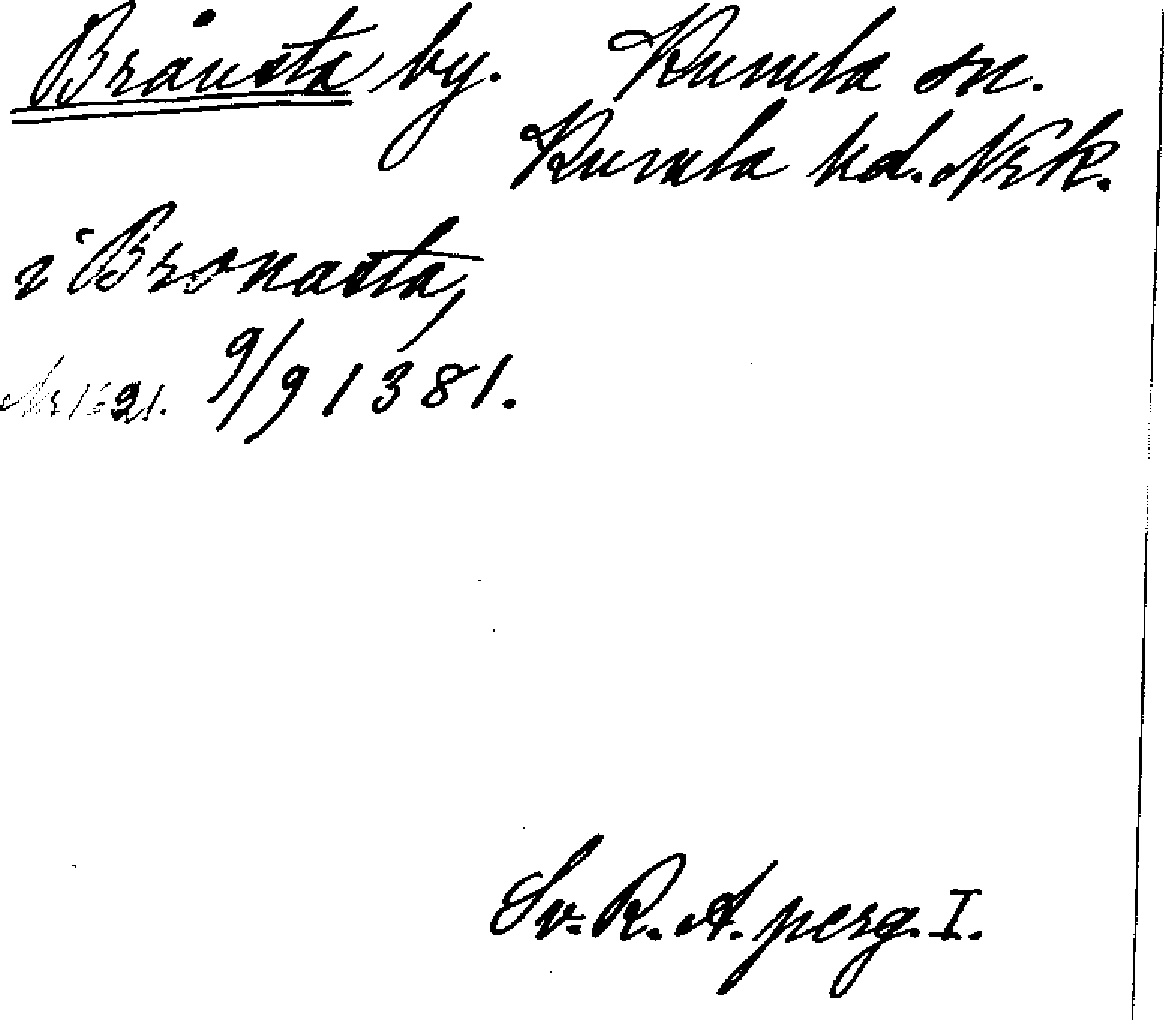 Brånsta by. Kumla sn.
Kumla hd. Nrk.
i Bronasta,
9/9 1381.
Sv. R. A. perg. I.